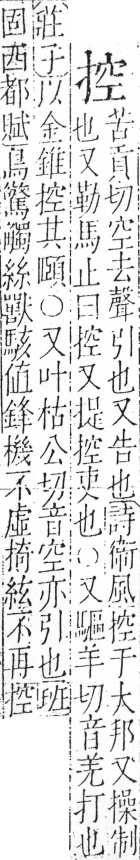 控苦貢切空去聲引也又告也詩衞風控于大邦又操制
也又勒馬止曰控又提控吏也○又驅羊切音羌打也
莊子以金錐控其頤○又叶枯公切音空亦引也班
固西都賦鳥驚觸絲獸駭值鋒機不虛掎絃不再控